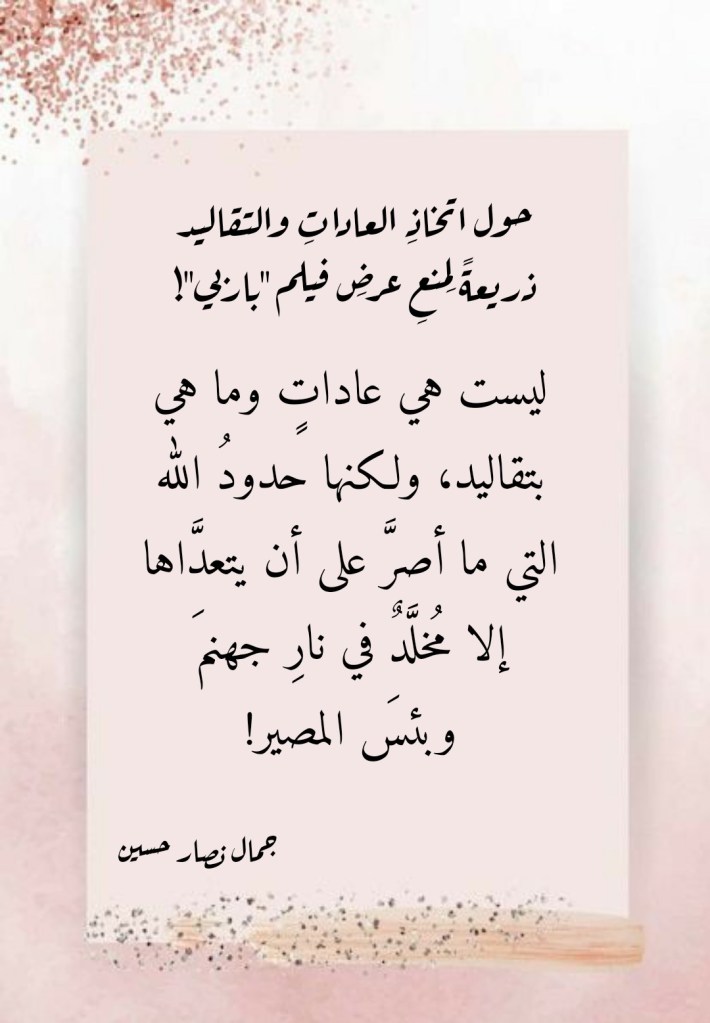 حول اتخاذِ العاداتِ والتقاليد
ذريعةً لِمنعِ عرضِ فيلم "باربي"!
ليست هي عاداتٍ وما هي
بتقاليد، ولكنها حدودُ الله
التي ما أصرَّ على أن يتعدَّاها
إلا مُخلَّدٌ في نارِ جهنمَ
وبئسَ المصير!
جمال نصار حسين